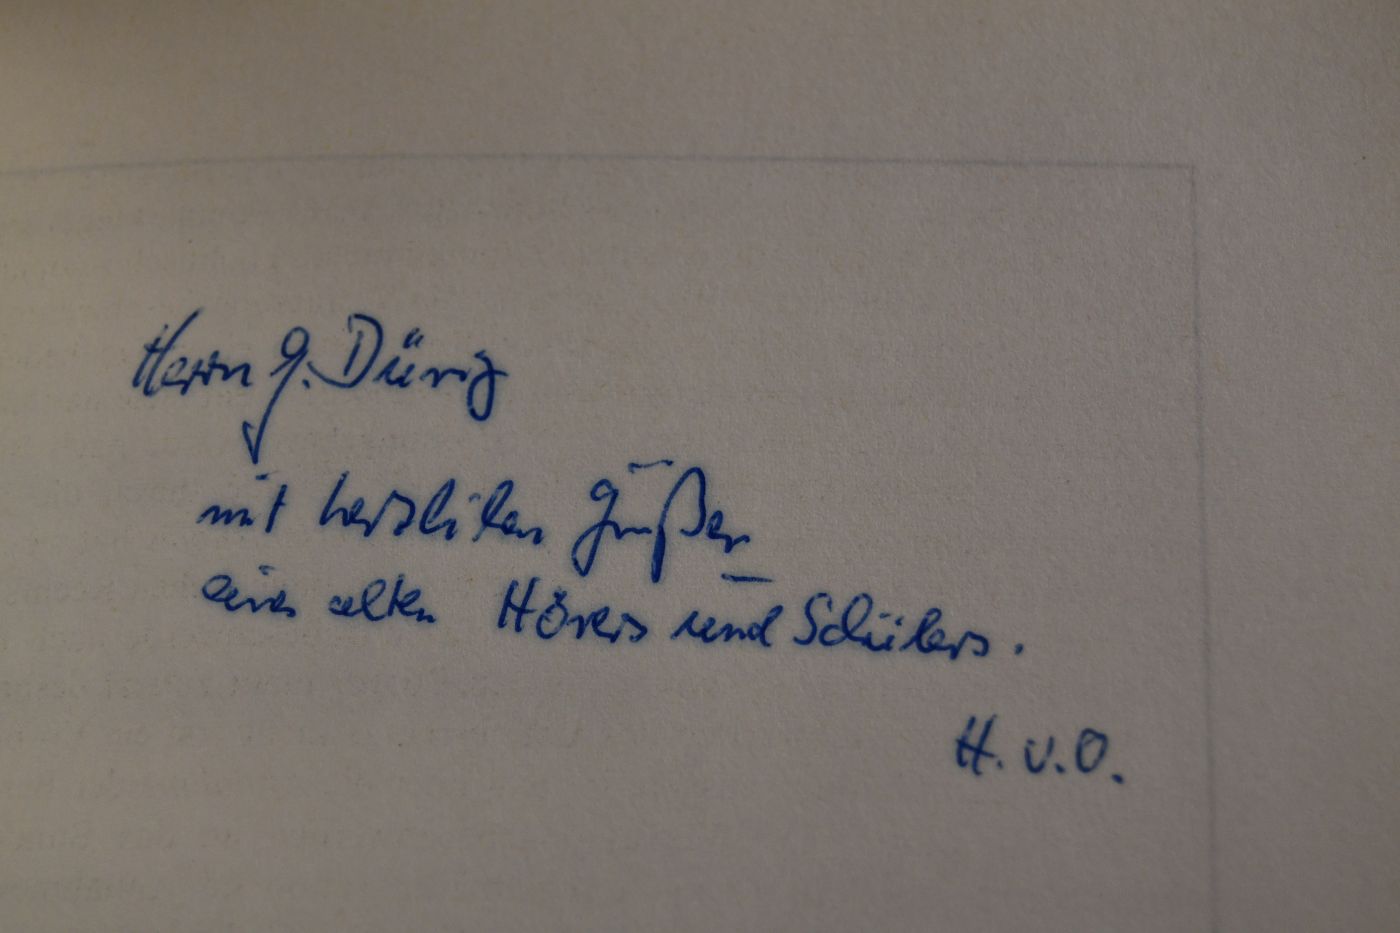 Herrn G. Dürig
mit herzlichen Grüßen
eines alten Hörers und Schülers.
H. v. O.